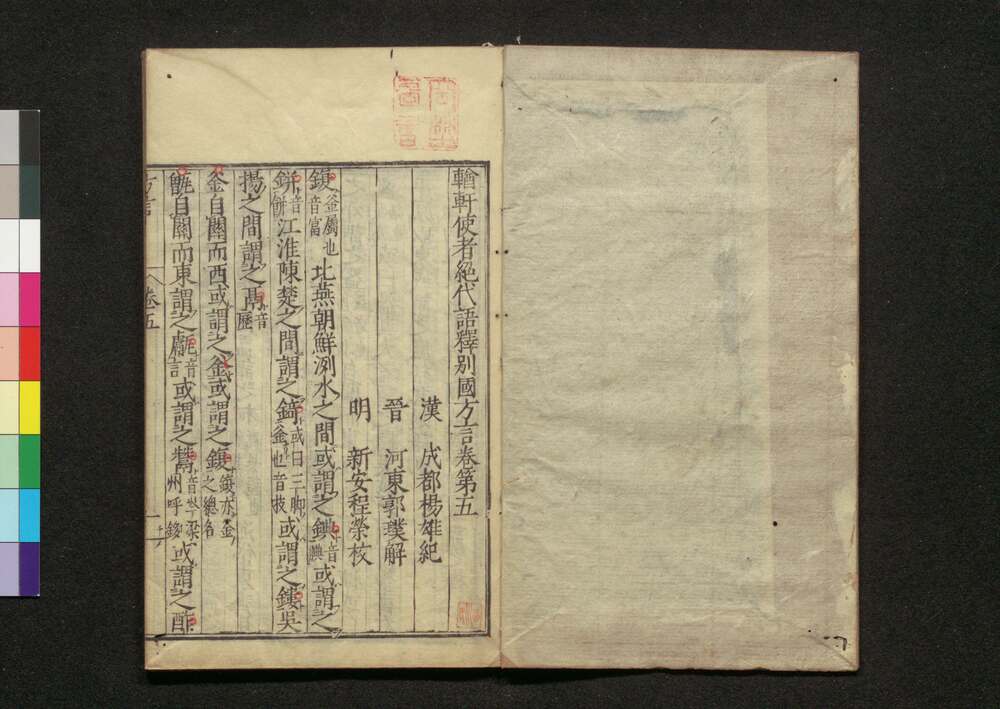 輶軒使者絕代語釋別國方言卷第五
漢 成都楊雄紀
晉 河東郭璞解
明 新安程榮校
鍑釜屬也音富北燕朝鮮洌水之間或謂之錪音腆或謂之
鉼音餅江淮陳楚之間謂之錡或曰三脚釜也音技或謂之鏤吳
揚之間謂之鬲音歷
釜自關而西或謂之釜或謂之鍑鍑亦釜之總名
甂自關而東謂之甗音言或謂之鬵音岑梁州呼鉹或謂之酢
方言 卷五